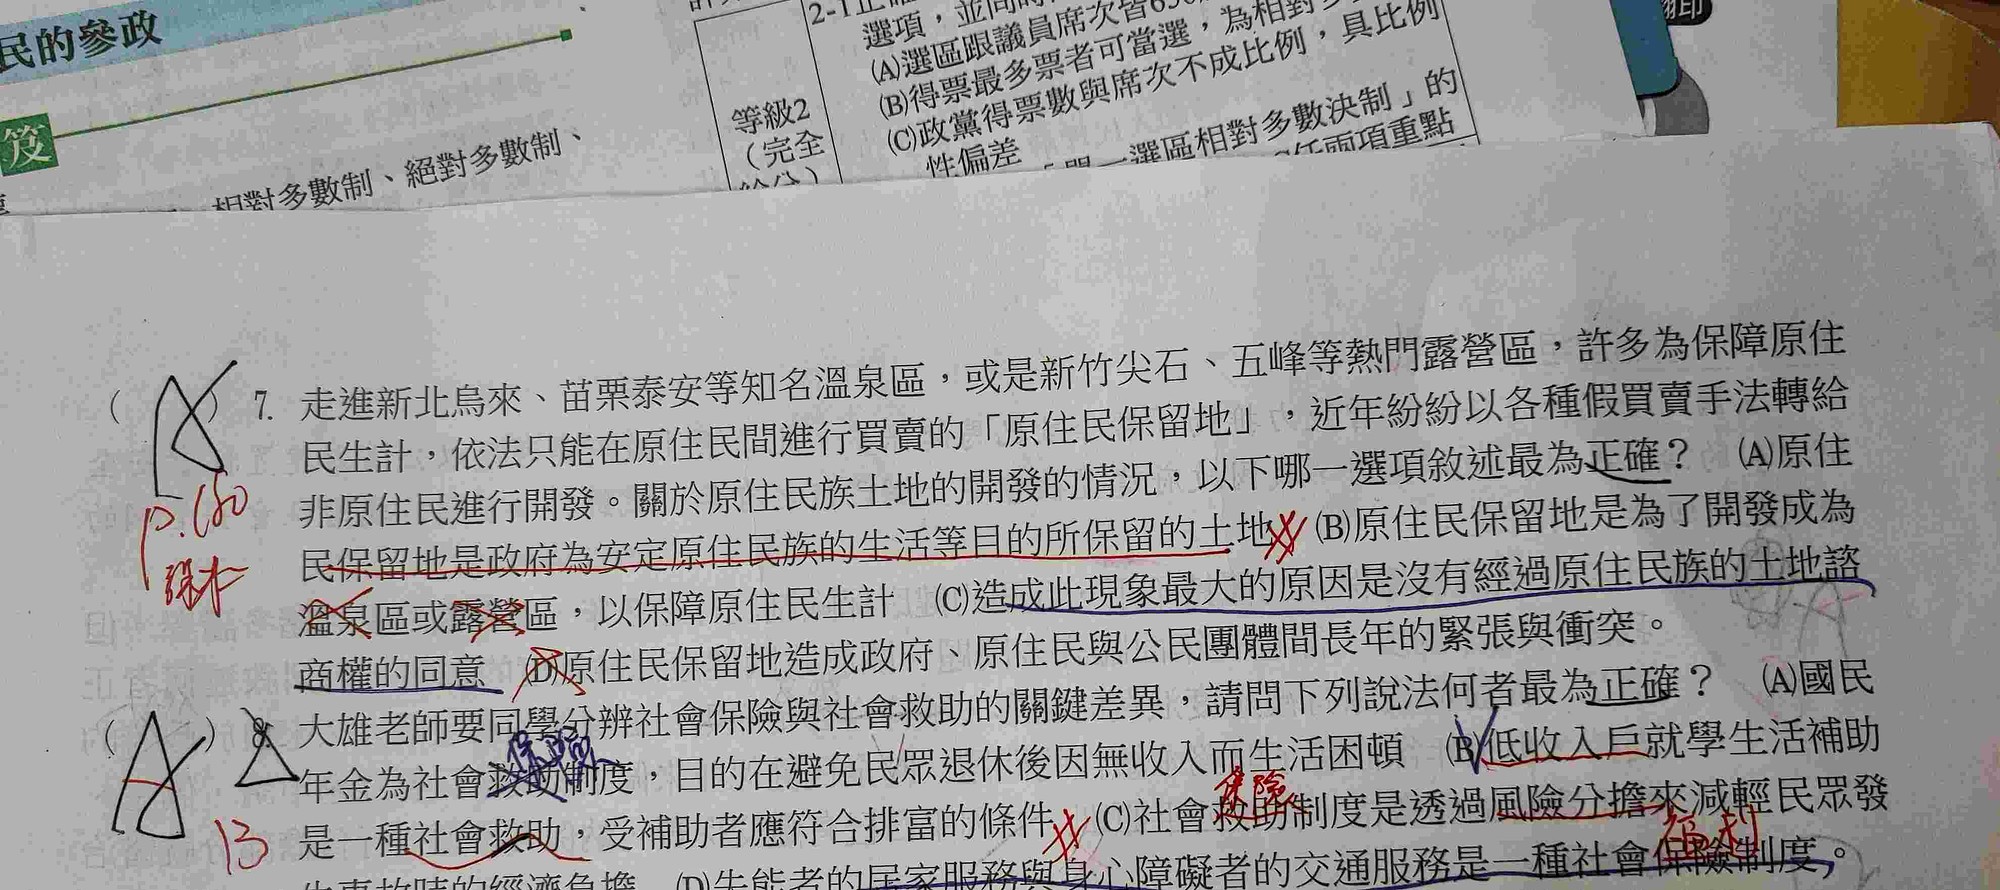 民的參政
笈
相對多數制、絕對多數制、
等級2
（完全
選項，並同時
(A)選區跟議員席次皆
(B)得票最多票者可當選，為相對多
(C)政黨得票數與席次不成比例，具比例
性偏差
單一選區相對多數決制」的
任兩項重點
( A ) 7. 走進新北烏來、苗栗泰安等知名溫泉區，或是新竹尖石、五峰等熱門露營區，許多為保障原住
民生計，依法只能在原住民間進行買賣的「原住民保留地」，近年紛紛以各種假買賣手法轉給
非原住民進行開發。關於原住民族土地的開發的情況，以下哪一選項敘述最為正確？ (A)原住
民保留地是政府為安定原住民族的生活等目的所保留的土地 (B)原住民保留地是為了開發成為
溫泉區或露營區，以保障原住民生計 (C)造成此現象最大的原因是沒有經過原住民族的土地諮
商權的同意 (D)原住民保留地造成政府、原住民與公民團體間長年的緊張與衝突。
課本
( ) 8. 大雄老師要同學分辨社會保險與社會救助的關鍵差異，請問下列說法何者最為正確？ (A)國民
保險
年金為社會救助制度，目的在避免民眾退休後因無收入而生活困頓 (B)低收入戶就學生活補助
保險
13
是一種社會救助，受補助者應符合排富的條件 (C)社會救助制度是透過風險分擔來減輕民眾發
福利
生事故時的經濟負擔 (D)失能者的居家服務與身心障礙者的交通服務是一種社會保險制度。